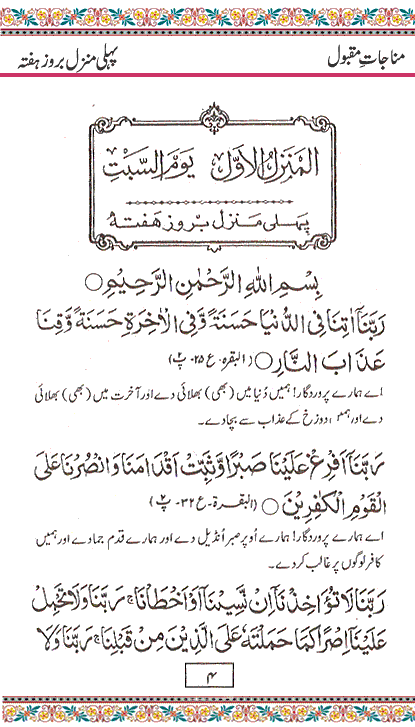 مناجاتِ مقبول
پہلی منزل بروز ہفتہ
اَلْمَنْزِلُ الْاَوَّلُ يَوْمَ السَّبْتِ
پہلی منزل بروز ہفتہ
بِسْمِ اللهِ الرَّحْمٰنِ الرَّحِيْمِ ○
رَبَّنَآ اٰتِنَا فِي الدُّنْيَا حَسَنَةً وَّفِي الْاٰخِرَةِ حَسَنَةً وَّقِنَا
عَذَابَ النَّارِ ○ (البقرہ۔ ع ۲۵۔ پ ۲)
اے ہمارے پروردگار! ہمیں دُنیا میں (بھی) بھلائی دے اور آخرت میں (بھی) بھلائی
دے اور ہمیں دوزخ کے عذاب سے بچا دے۔
رَبَّنَآ اَفْرِغْ عَلَيْنَا صَبْرًا وَّثَبِّتْ اَقْدَامَنَا وَانْصُرْنَا عَلَى
الْقَوْمِ الْكٰفِرِيْنَ ○ (البقرة۔ ع ۳۲۔ پ ۲)
اے ہمارے پروردگار! ہمارے اُوپر صبر اُنڈیل دے اور ہمارے قدم جما دے اور ہمیں
کافر لوگوں پر غالب کر دے۔
رَبَّنَا لَا تُؤَاخِذْنَآ اِنْ نَّسِيْنَآ اَوْ اَخْطَاْنَا ۚ رَبَّنَا وَلَا تَحْمِلْ
عَلَيْنَآ اِصْرًا كَمَا حَمَلْتَهٗ عَلَى الَّذِيْنَ مِنْ قَبْلِنَا ۚ رَبَّنَا وَلَا
۴